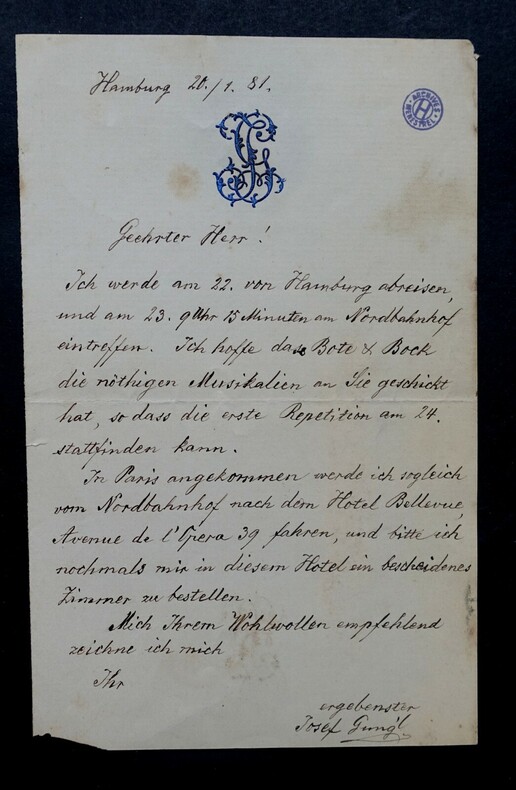 Hamburg 20./1. 81.
ARCHIVES
H
MENESTREL
JG
Geehrter Herr!
Ich werde am 22. von Hamburg abreisen,
und am 23. 9 Uhr 15 Minuten am Nordbahnhof
eintreffen. Ich hoffe dass Bote & Bock
die nöthigen Musikalien an Sie geschickt
hat, so dass die erste Repetition am 24.
stattfinden kann.
In Paris angekommen werde ich sogleich
vom Nordbahnhof nach dem Hotel Bellevue,
Avenue de l'Opera 39 fahren, und bitte ich
nochmals mir in diesem Hotel ein bescheidenes
Zimmer zu bestellen.
Mich Ihrem Wohlwollen empfehlend
zeichne ich mich
Ihr
ergebenster
Josef Gung'l